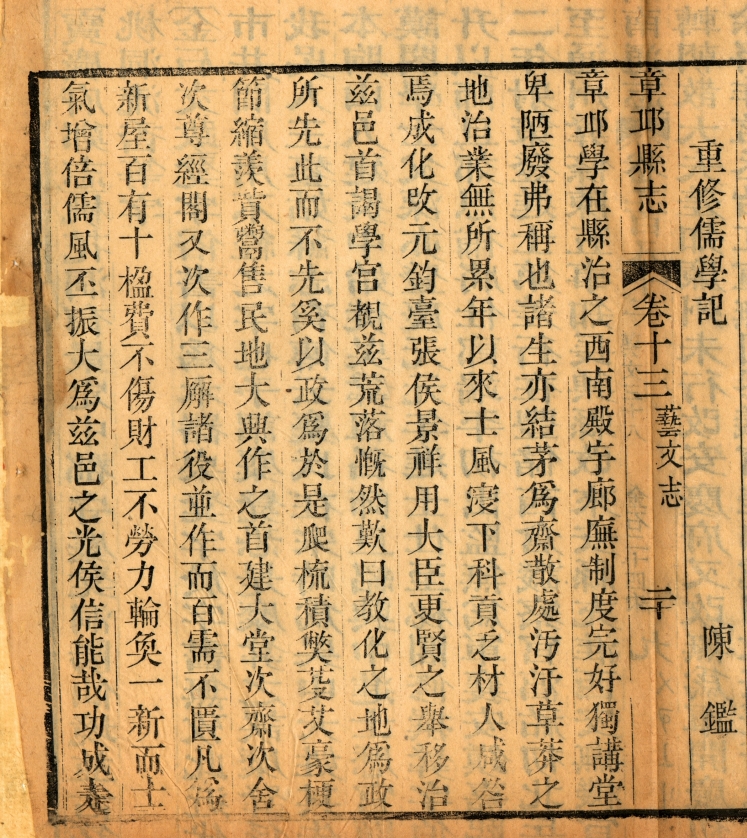 重修儒學記 陳鑑
章邱縣志 卷十三 藝文志 二十
章邱學在縣治之西南殿宇廊廡制度完好獨講堂
卑陋廢弗稱也諸生亦結茅爲齋散處汚汙草莽之
地治業無所累年以來士風寖下科貢乏材人咸咎
焉成化改元鈞臺張侯景祥用大臣更賢之舉移治
兹邑首謁學宮覩兹荒落慨然歎曰教化之地爲政
所先此而不先奚以政爲於是爬梳積弊芟艾豪梗
節縮羨貲鬻售民地大興作之首建大堂次齋次舍
次尊經閣又次作三廨諸役並作而百需不匱凡爲
新屋百有十楹費不傷財工不勞力輪奐一新而士
氣增倍儒風丕振大爲兹邑之光侯信能哉功成走